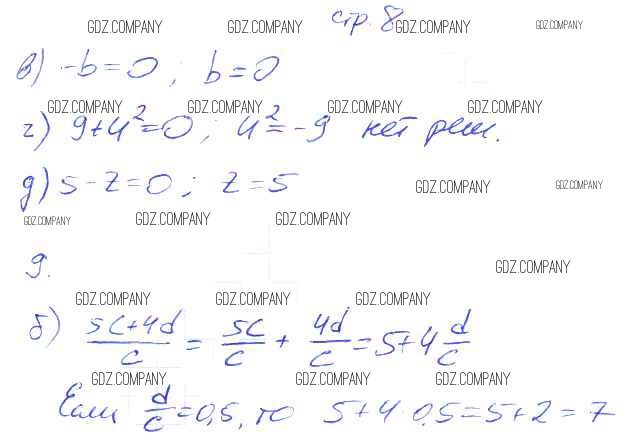 стр. 8
GDZ.COMPANY GDZ.COMPANY GDZ.COMPANY GDZ.COMPANY
в) -b=0; b=0
GDZ.COMPANY GDZ.COMPANY GDZ.COMPANY GDZ.COMPANY
г) 9+u²=0; u²=-9 нет реш.
д) 5-z=0; z=5
GDZ.COMPANY GDZ.COMPANY
GDZ.COMPANY GDZ.COMPANY GDZ.COMPANY
9.
GDZ.COMPANY
GDZ.COMPANY GDZ.COMPANY GDZ.COMPANY
б) (5c+4d)/c = 5c/c + 4d/c = 5+4 d/c
GDZ.COMPANY GDZ.COMPANY GDZ.COMPANY
Если d/c=0,5, то 5+4·0,5=5+2=7